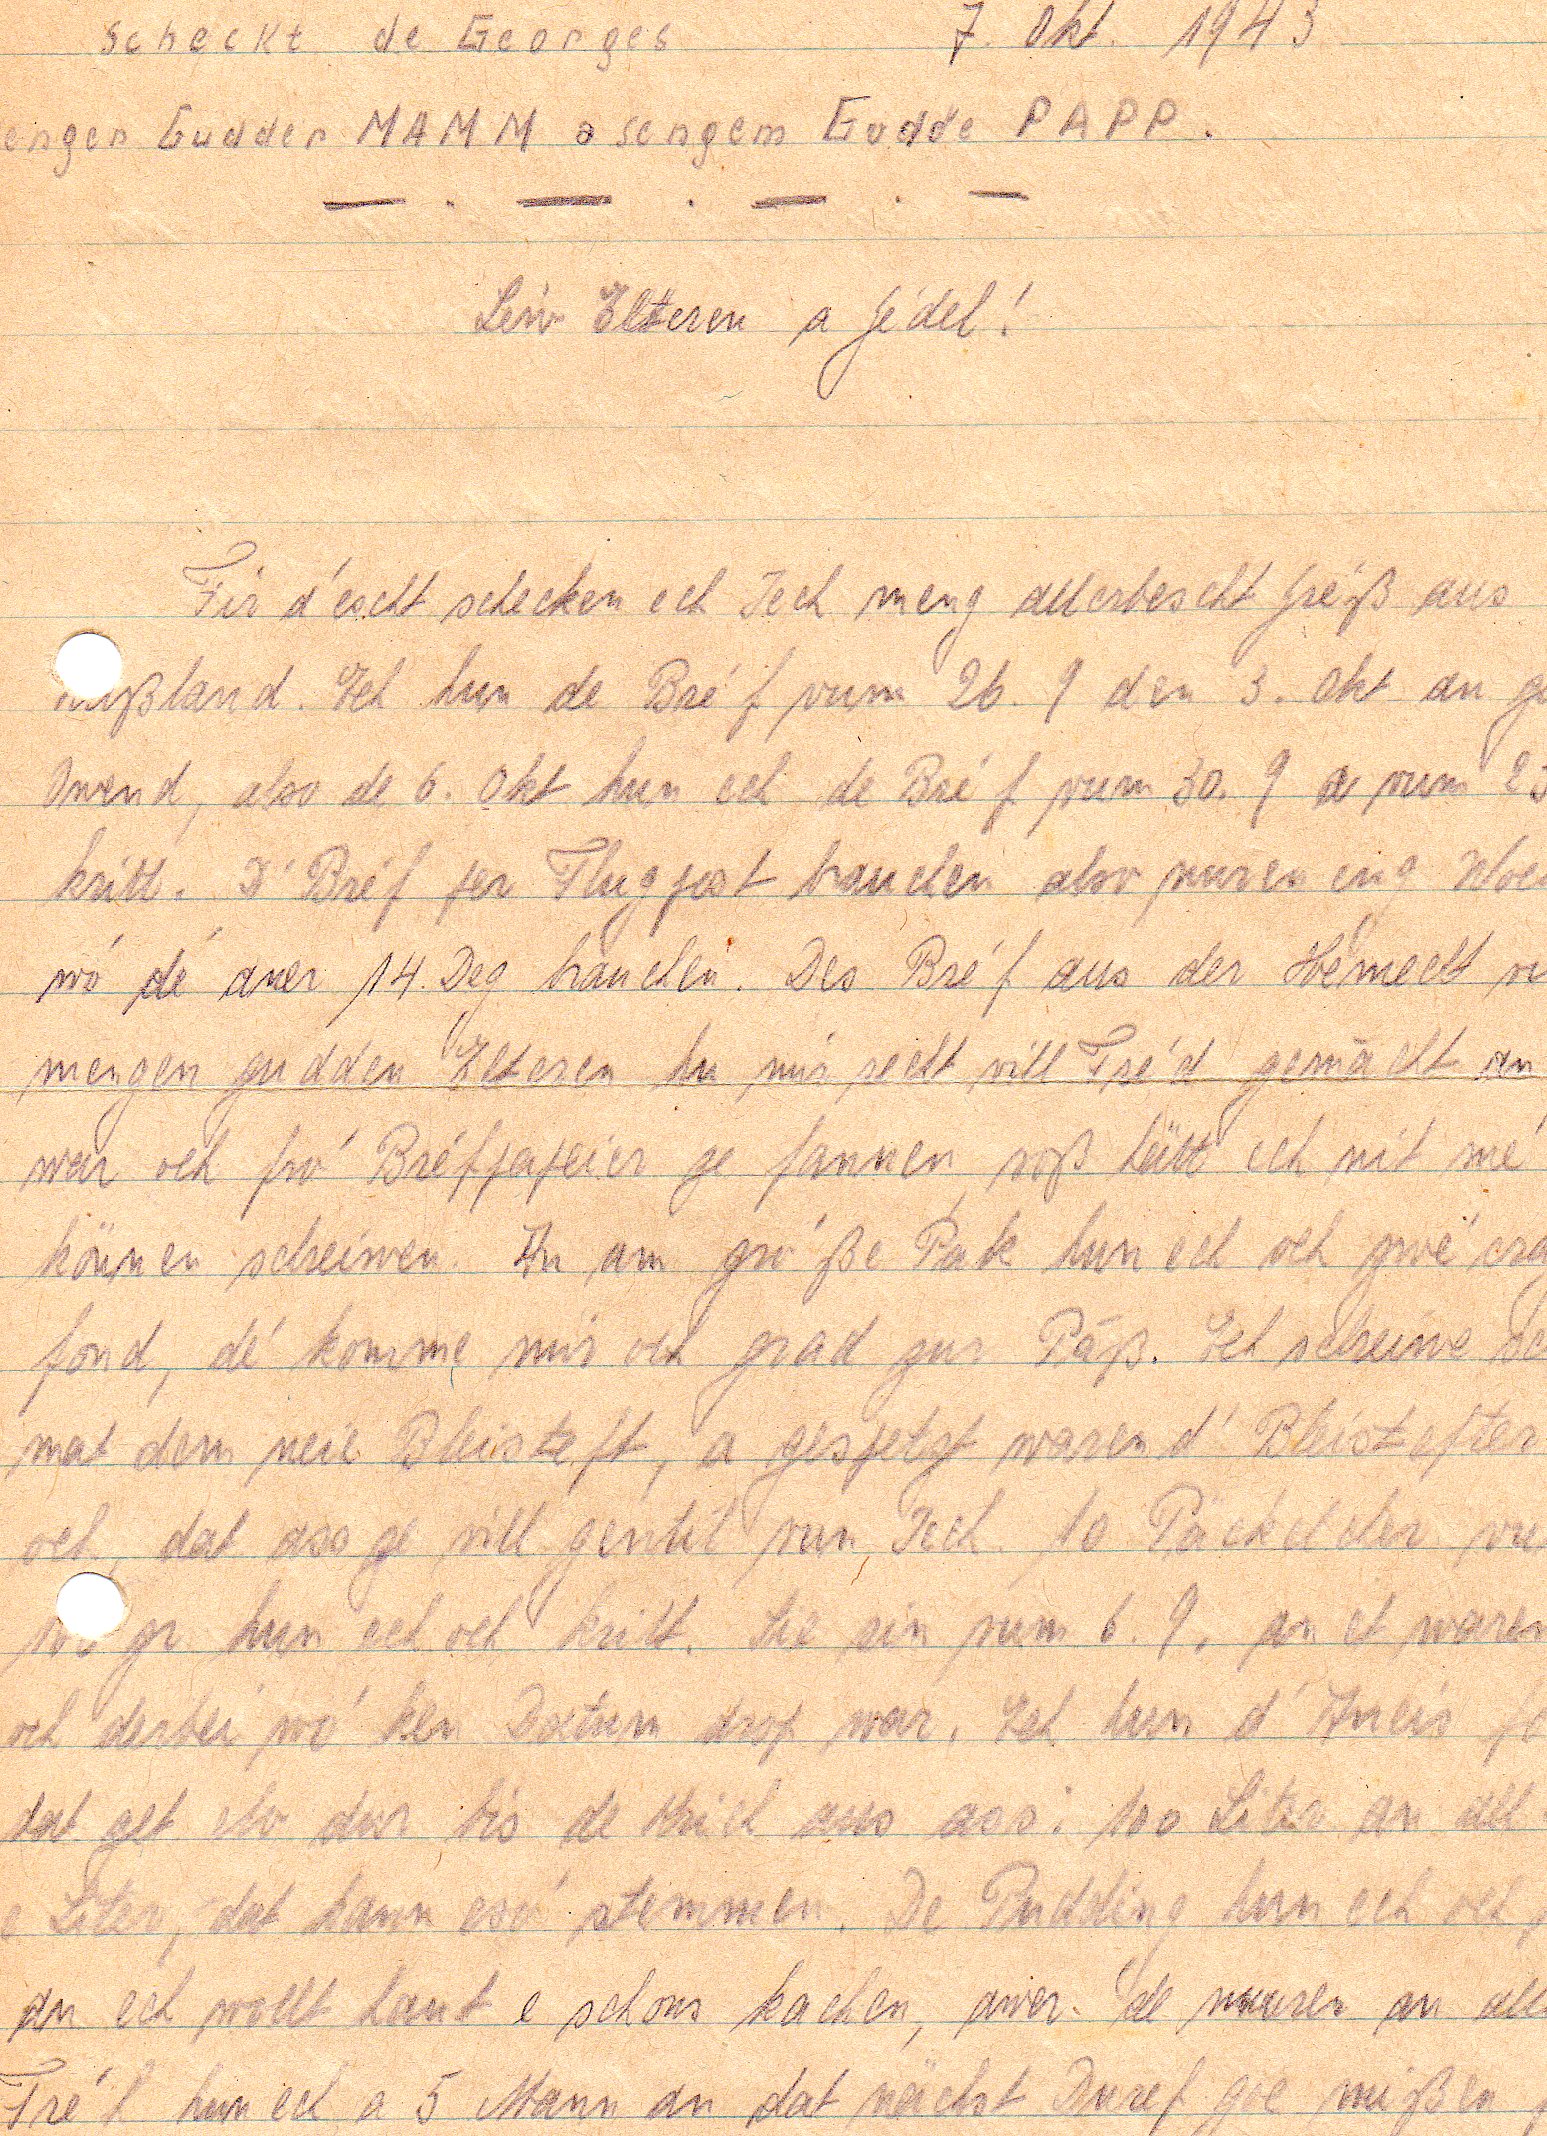 Scheckt de Georges 7. Okt. 1943
senger Gudder MAMM a sengem Gudde PAPP.
— . — . — . —
Leiw Elteren a Jédel!
Fir d'éscht schecken ech Iech meng allerbescht Gréiß aus
Rußland. Ech hun de Bréf vum 26. 9 den 3. Okt an gë
Owend, also de 6. Okt hun ech de Bréf vum 30. 9 a vum 23
kritt. D'Bréf per Flugpost brauchen also nuren eng Woch
wó dé aner 14. Deg brauchen. Des Bréf aus der Hémecht vu
mengen gudden Elteren hu mir recht vill Fré'd gemächt an
war och fró Bréfpapeier ze fannen, soß hätt ech nit mé
können schreiwen. An am gró ße Pak hun ech och zwé
fond, dé komme mir och grad zur Päß. Ech schreiwe
mat dem neie Bleisteft, a gespetzt waren d'Bleistefter
och, dat ass ze vill gentil vun Iech. 10 Päckelcher vu
100 gr hun ech och kritt. Sie sin vum 6. 9. an et waren
och derbei wó ken Datum drop war. Ech hun d'
dat get elo dur bis de Krich aus ass: 100 Liter an all
e Liter, dat kann esó stemmen. De Pudding hun ech och
an ech wollt haut e schons kachen, awer de muuren an all
Fré'h hun ech a 5 Mann an dat nächst Duref goe mißen